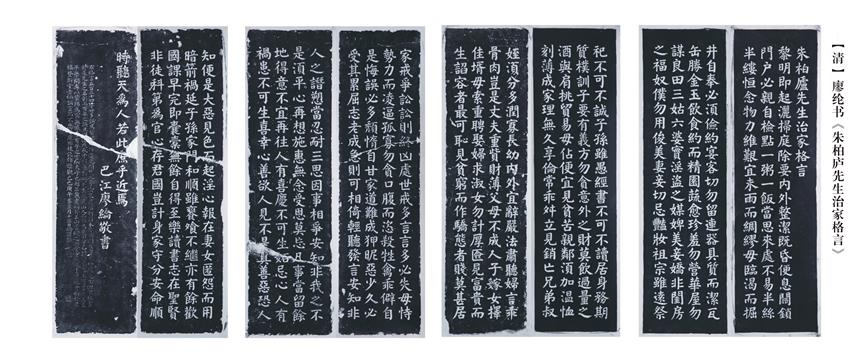 【清】廖纶书《朱柏庐先生治家格言》
朱柏廬先生治家格言
黎明即起灑掃庭除要內外整潔既昏便息關鎖
門户必親自檢點一粥一飯當思來處不易半絲
半縷恒念物力維艱宜未雨而綢繆毋臨渴而掘
井自奉必須儉約宴客切勿留連器具質而潔瓦
缶勝金玉飲食約而精園蔬愈珍羞勿營華屋勿
謀良田三姑六婆實淫盜之媒婢美妾嬌非閨房
之福奴僕勿用俊美妻妾切忌豔妝祖宗雖遠祭
祀不可不誠子孫雖愚經書不可不讀居身務期
質樸訓子要有義方勿貪意外之財莫飲過量之
酒與肩挑貿易毋佔便宜見貧苦親鄰須加溫恤
刻薄成家理無久享倫常乖舛立見銷亡兄弟叔
姪須分多潤寡長幼內外宜辭嚴法肅聽婦言乖
骨肉豈是丈夫重貲財薄父母不成人子嫁女擇
佳壻毋索重聘娶婦求淑女勿計厚匳見富貴而
生諂容者最可耻見貧窮而作驕態者賤莫甚居
家戒爭訟訟則終凶處世戒多言言多必失毋恃
勢力而凌逼孤寡勿貪口腹而恣殺牲禽乖僻自
是悔誤必多頹惰自甘家道難成狎昵惡少久必
受其累屈志老成急則可相倚輕聽發言安知非
人之譖愬當忍耐三思因事相爭安知非我之不
是須平心再想施惠無念受恩莫忘凡事當留餘
地得意不宜再往人有喜慶不可生忌心人有
禍患不可生喜幸心善欲人見不是真善惡恐人
知便是大惡見色而起淫心報在妻女匿怨而用
暗箭禍延子孫家門和順雖饔飧不繼亦有餘歡
國課早完即囊橐無餘自得至樂讀書志在聖賢
非徒科第為官心存君國豈計身家守分安命順
時聽天為人若此庶乎近焉
巴江廖綸敬書